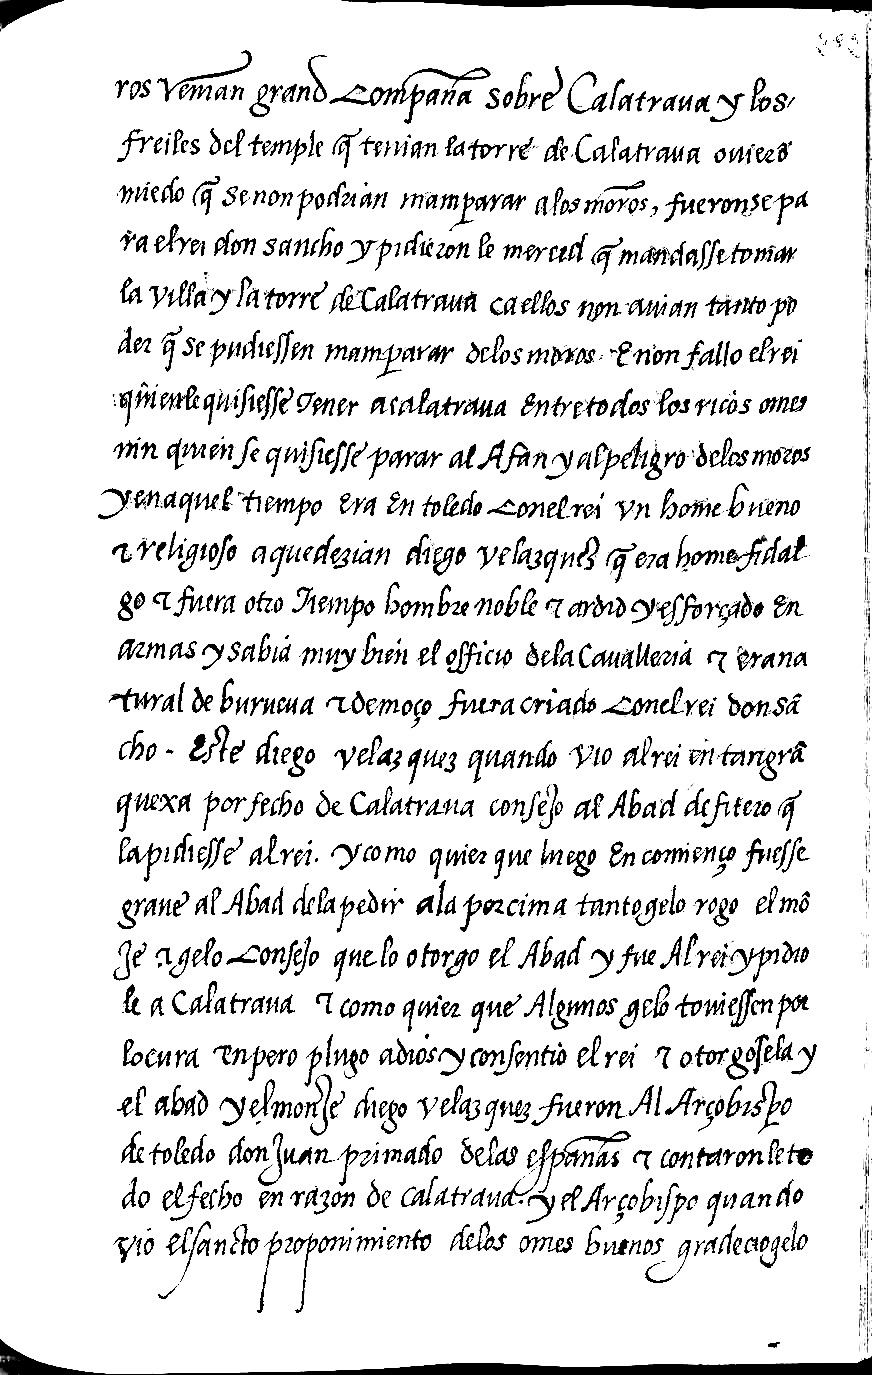 ros venian grand compaña sobre Calatraua y los
freiles del temple q̃ tenian la torre de Calatraua ouierõ
miedo q̃ se non podrian mamparar a los moros, fueronse pa
ra el rei don sancho y pidieron le merced q̃ mandasse tomar
la villa y la torre de Calatraua ca ellos non auian tanto po
der q̃ se pudiessen mamparar de los moros. E non fallo el rei
quien le quisiesse tener a calatraua entre todos los ricos omes
nin quien se quisiesse parar al Afan y al peligro de los moros
y en aquel tiempo era en toledo con el rei vn home bueno
⁊ religioso a que dezian diego velazquez q̃ era home fidal
go ⁊ fuera otro tiempo hombre noble ⁊ ardid y esforçado en
armas y sabia muy bien el officio de la Caualleria ⁊ era na
tural de burueua ⁊ de moço fuera criado con el rei don sã
cho - Este diego velazquez quando vio al rei en tan grã
quexa por fecho de Calatraua consejo al Abad de fitero q̃
la pidiesse al rei. y como quier que luego en comienço fuesse
graue al Abad de la pedir a la por cima tanto gelo rogo el mõ
je ⁊ gelo consejo que lo otorgo el Abad y fue Al rei y pidio
le a Calatraua ⁊ como quier que Algunos gelo touiessen por
locura enpero plugo a dios y consentio el rei ⁊ otorgosela y
el abad y el monje diego velazquez fueron Al Arçobispo
de toledo don Juan primado de las españas ⁊ contaron le to
do el fecho en razon de calatraua. y el Arçobispo quando
vio el sancto proponimiento de los omes buenos gradeciogelo